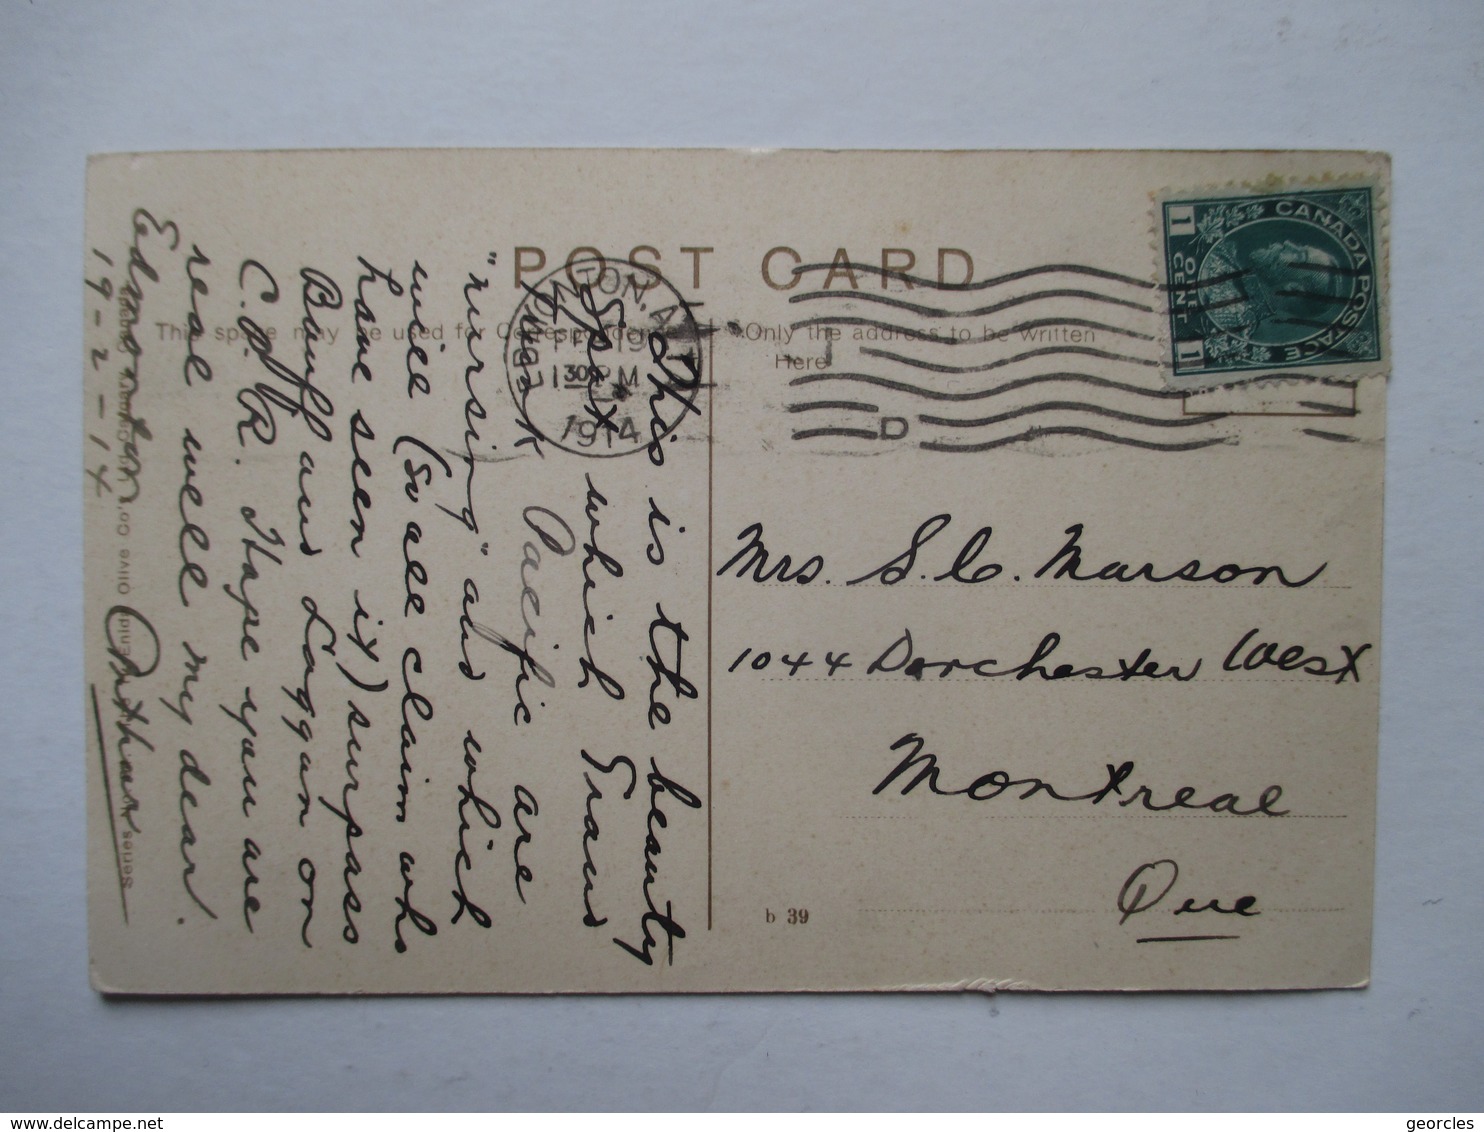 POST CARD
This space may be used for Correspondence
Only the address to be written
Here
CANADA POSTAGE
1 ONE CENT 1
TON, A
19
30 PM
1914
D
This is the beauty
Spot which Grand
Trunk Pacific are
"nursing" and which
will (so all claim who
have seen it) surpass
Banff and Laggan on
C.P.R. Hope you are
real well my dear.
Edmonton
19-2-14
Mrs. S. C. Marson
1044 Dorchester West
Montreal
Que
b 39
Series
delcampe.net
georcles